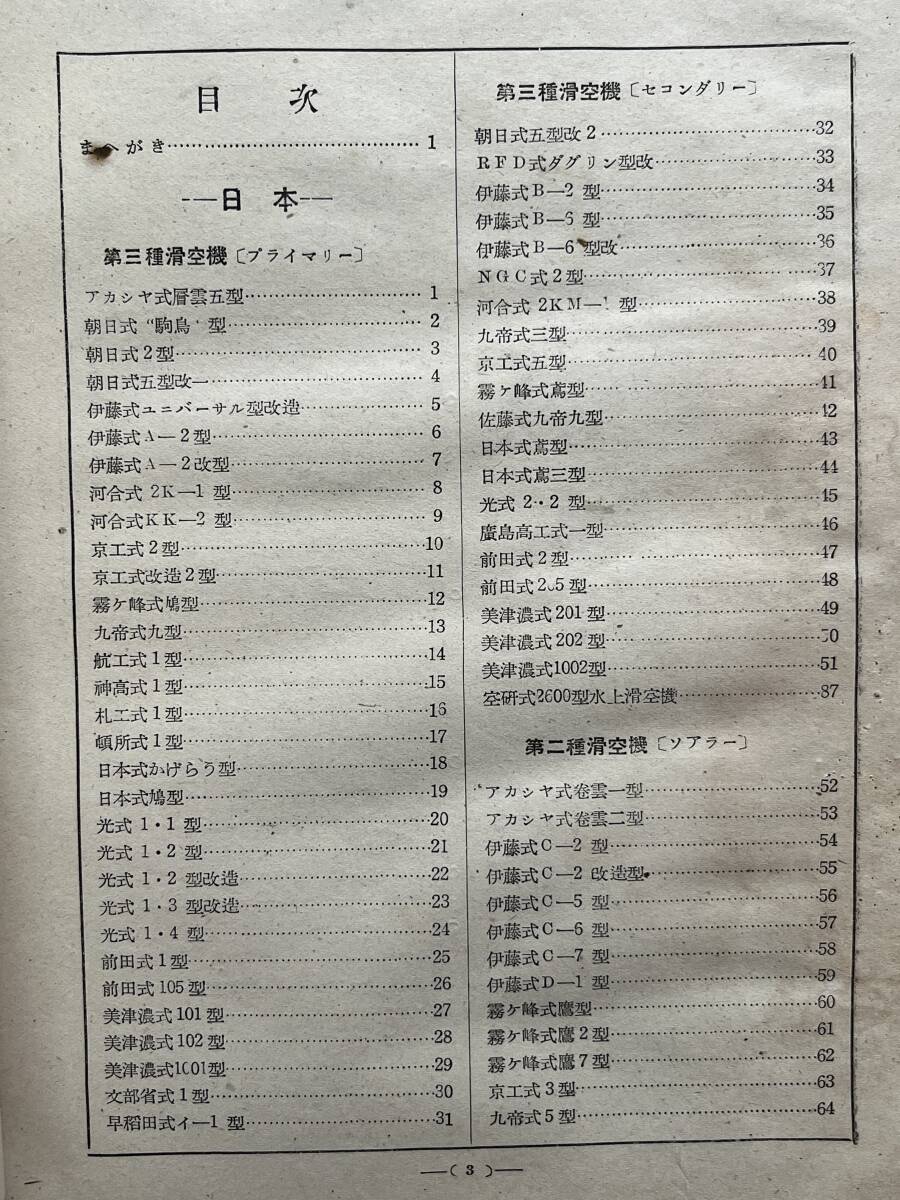 目次
まへがき……1
―日本―
第三種滑空機〔プライマリー〕
アカシヤ式層雲五型……1
朝日式“駒鳥”型……2
朝日式2型……3
朝日式五型改一……4
伊藤式ユニバーサル型改造……5
伊藤式A—2型……6
伊藤式A—2改型……7
河合式2K—1型……8
河合式KK—2型……9
京工式2型……10
京工式改造2型……11
霧ケ峰式鳩型……12
九帝式九型……13
航工式1型……14
神高式1型……15
札工式1型……16
頓所式1型……17
日本式かげらう型……18
日本式鳩型……19
光式1・1型……20
光式1・2型……21
光式1・2型改造……22
光式1・3型改造……23
光式1・4型……24
前田式1型……25
前田式105型……26
美津濃式101型……27
美津濃式102型……28
美津濃式1001型……29
文部省式1型……30
早稲田式イ—1型……31
第三種滑空機〔セコンダリー〕
朝日式五型改2……32
RFD式ダグリン型改……33
伊藤式B—2型……34
伊藤式B—5型……35
伊藤式B—6型改……36
NGC式2型……37
河合式2KM—1型……38
九帝式三型……39
京工式五型……40
霧ケ峰式鳶型……41
佐藤式九帝九型……42
日本式鳶型……43
日本式鳶三型……44
光式2・2型……45
廣島高工式一型……46
前田式2型……47
前田式205型……48
美津濃式201型……49
美津濃式202型……50
美津濃式1002型……51
空研式2600型水上滑空機……87
第二種滑空機〔ソアラー〕
アカシヤ式卷雲一型……52
アカシヤ式卷雲二型……53
伊藤式C—2型……54
伊藤式C—2改造型……55
伊藤式C—5型……56
伊藤式C—6型……57
伊藤式C—7型……58
伊藤式D—1型……59
霧ケ峰式鷹型……60
霧ケ峰式鷹2型……61
霧ケ峰式鷹7型……62
京工式3型……63
九帝式5型……64
—( 3 )—